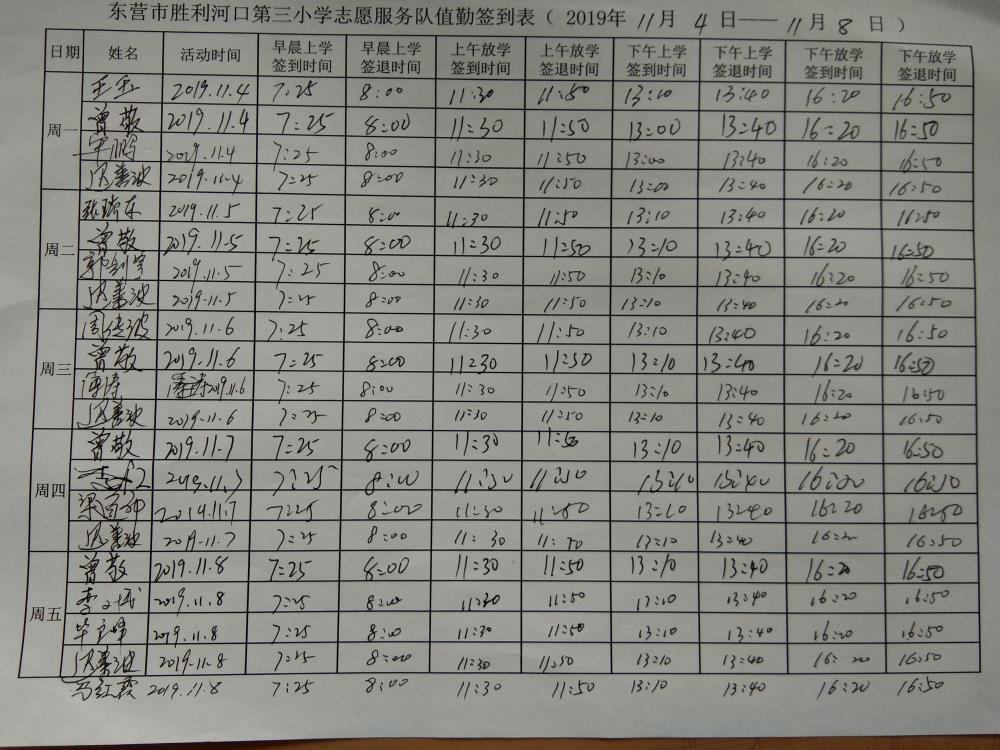 东营市胜利河口第三小学志愿服务队值勤签到表（ 2019年 11月 4 日——11月 8 日 ）
日期 姓名 活动时间 早晨上学签到时间 早晨上学签退时间 上午放学签到时间 上午放学签退时间 下午上学签到时间 下午上学签退时间 下午放学签到时间 下午放学签退时间
周一 王玉 2019.11.4 7:25 8:00 11:30 11:50 13:10 13:40 16:20 16:50
曾敬 2019.11.4 7:25 8:00 11:30 11:50 13:00 13:40 16:20 16:50
2019.11.4 7:25 8:00 11:30 11:50 13:00 13:40 16:20 16:50
2019.11.4 7:25 8:00 11:30 11:50 13:00 13:40 16:20 16:50
周二 2019.11.5 7:25 8:00 11:30 11:50 13:10 13:40 16:20 16:50
曾敬 2019.11.5 7:25 8:00 11:30 11:50 13:10 13:40 16:20 16:50
2019.11.5 7:25 8:00 11:30 11:50 13:10 13:40 16:20 16:50
2019.11.5 7:25 8:00 11:30 11:50 13:10 13:40 16:20 16:50
周三 2019.11.6 7:25 8:00 11:30 11:50 13:10 13:40 16:20 16:50
曾敬 2019.11.6 7:25 8:00 11:30 11:50 13:10 13:40 16:20 16:50
2019.11.6 7:25 8:00 11:30 11:50 13:10 13:40 16:20 16:50
2019.11.6 7:25 8:00 11:30 11:50 13:10 13:40 16:20 16:50
周四 曾敬 2019.11.7 7:25 8:00 11:30 11:50 13:10 13:40 16:20 16:50
2019.11.7 7:25 8:00 11:30 13:10 13:40
2019.11.7 7:25 8:00 11:30 11:50 13:10 13:40 16:20 16:50
2019.11.7 7:25 8:00 11:30 11:50 13:10 13:40 16:20 16:50
周五 曾敬 2019.11.8 7:25 8:00 11:30 11:50 13:10 13:40 16:20 16:50
2019.11.8 7:25 8:00 11:30 11:50 13:40 16:20 16:50
2019.11.8 7:25 8:00 11:30 11:50 13:10 13:40 16:20 16:50
2019.11.8 7:25 8:00 11:30 11:50 13:10 13:40 16:20 16:50
马红霞 2019.11.8 7:25 8:00 11:30 11:50 13:10 13:40 16:20 16:50